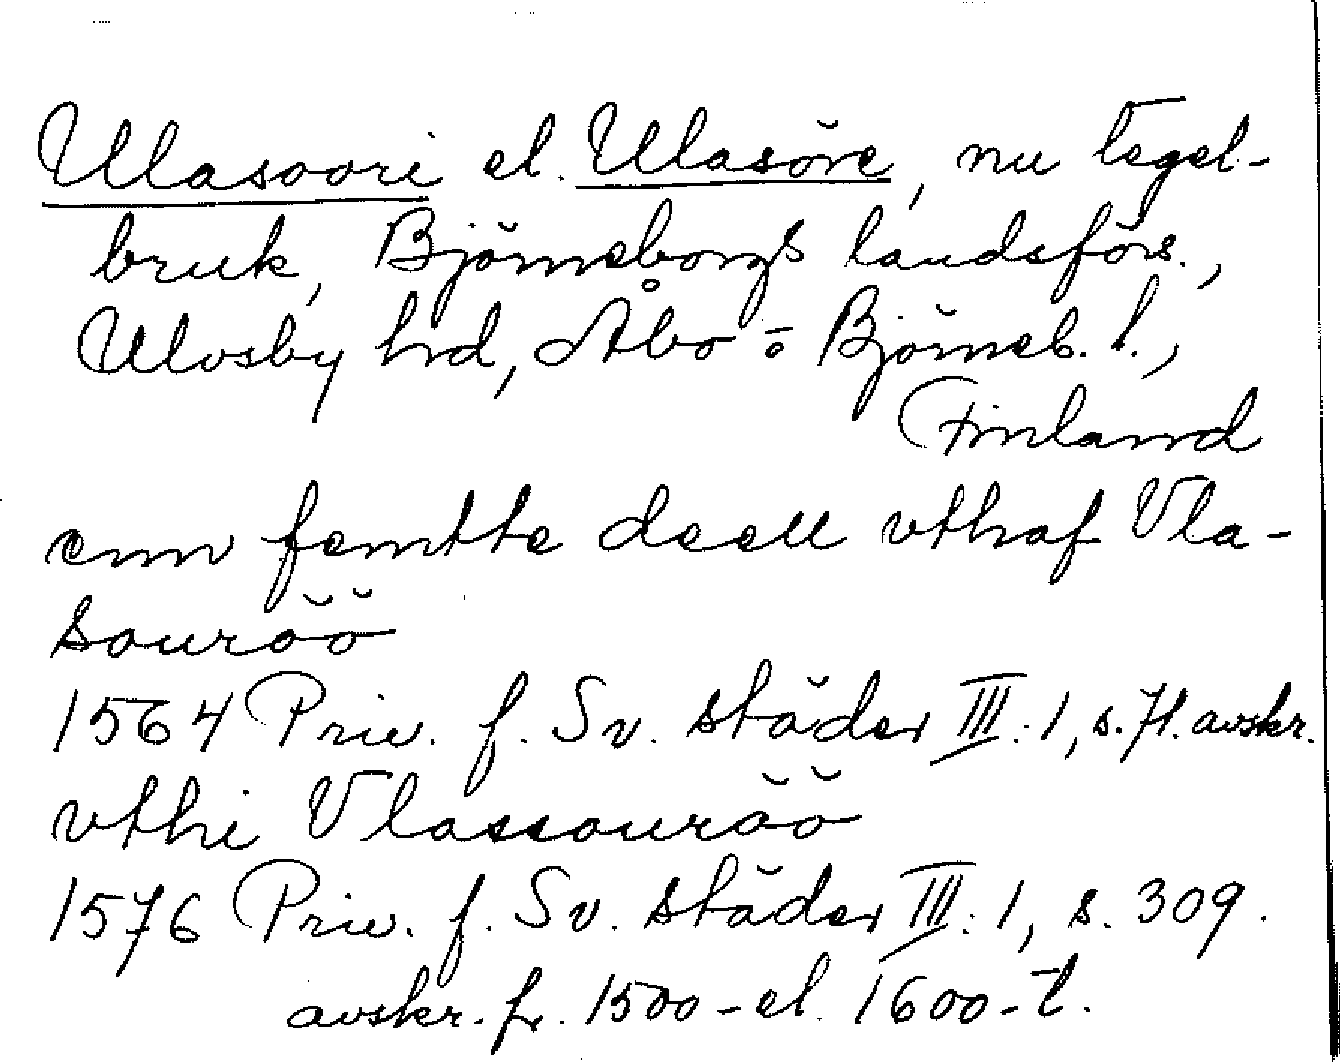 Ulasoori el. Ulasöre, nu tegel-
bruk, Björneborgs landsförs.,
Ulvsby hrd, Åbo- o Björneb. l.,
Finland
enn femtte deell vthaf Vla-
souröö
1564 Priv. f. Sv. städer III:1, s. 71. avskr.
vthi Vlassouröö
1576 Priv. f. Sv. städer III:1, s. 309.
avskr. fr. 1500- el. 1600-t.